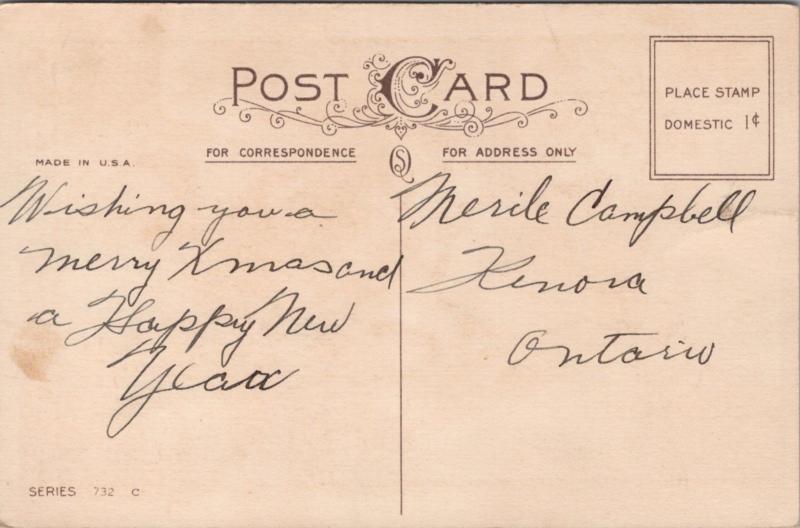 POST CARD
PLACE STAMP
DOMESTIC 1¢
MADE IN U.S.A.
FOR CORRESPONDENCE
SQ
FOR ADDRESS ONLY
Wishing you a
merry Xmas and
a Happy New
Year
Merile Campbell
Kenora
Ontario
SERIES 732 C